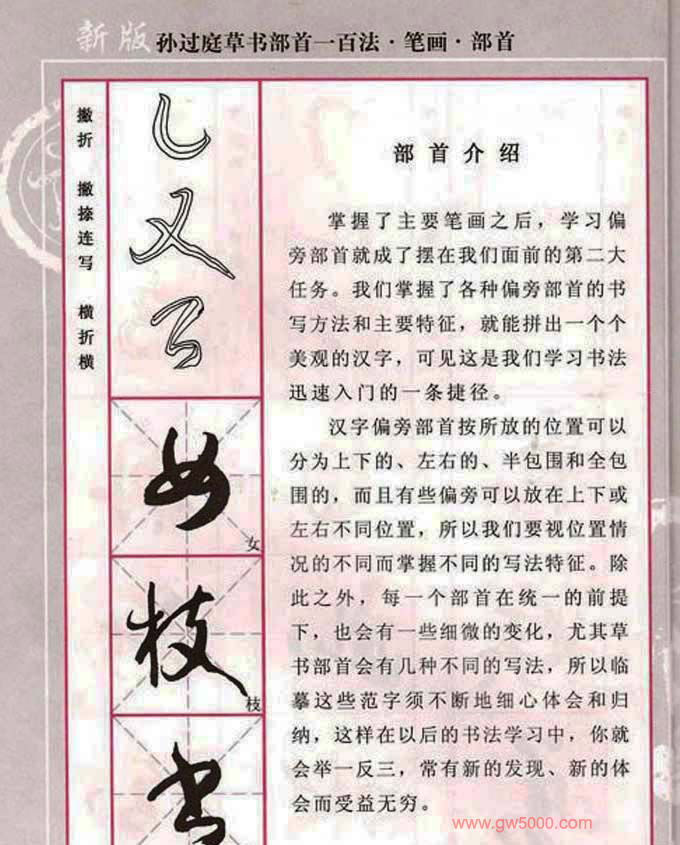 新版 孙过庭草书部首一百法·笔画·部首
撇折 撇捺连写 横折横
女
枝
部首介绍
掌握了主要笔画之后，学习偏
旁部首就成了摆在我们面前的第二大
任务。我们掌握了各种偏旁部首的书
写方法和主要特征，就能拼出一个个
美观的汉字，可见这是我们学习书法
迅速入门的一条捷径。
汉字偏旁部首按所放的位置可以
分为上下的、左右的、半包围和全包
围的，而且有些偏旁可以放在上下或
左右不同位置，所以我们要视位置情
况的不同而掌握不同的写法特征。除
此之外，每一个部首在统一的前提
下，也会有一些细微的变化，尤其草
书部首会有几种不同的写法，所以临
摹这些范字须不断地细心体会和归
纳，这样在以后的书法学习中，你就
会举一反三，常有新的发现、新的体
会而受益无穷。
www.gw5000.com